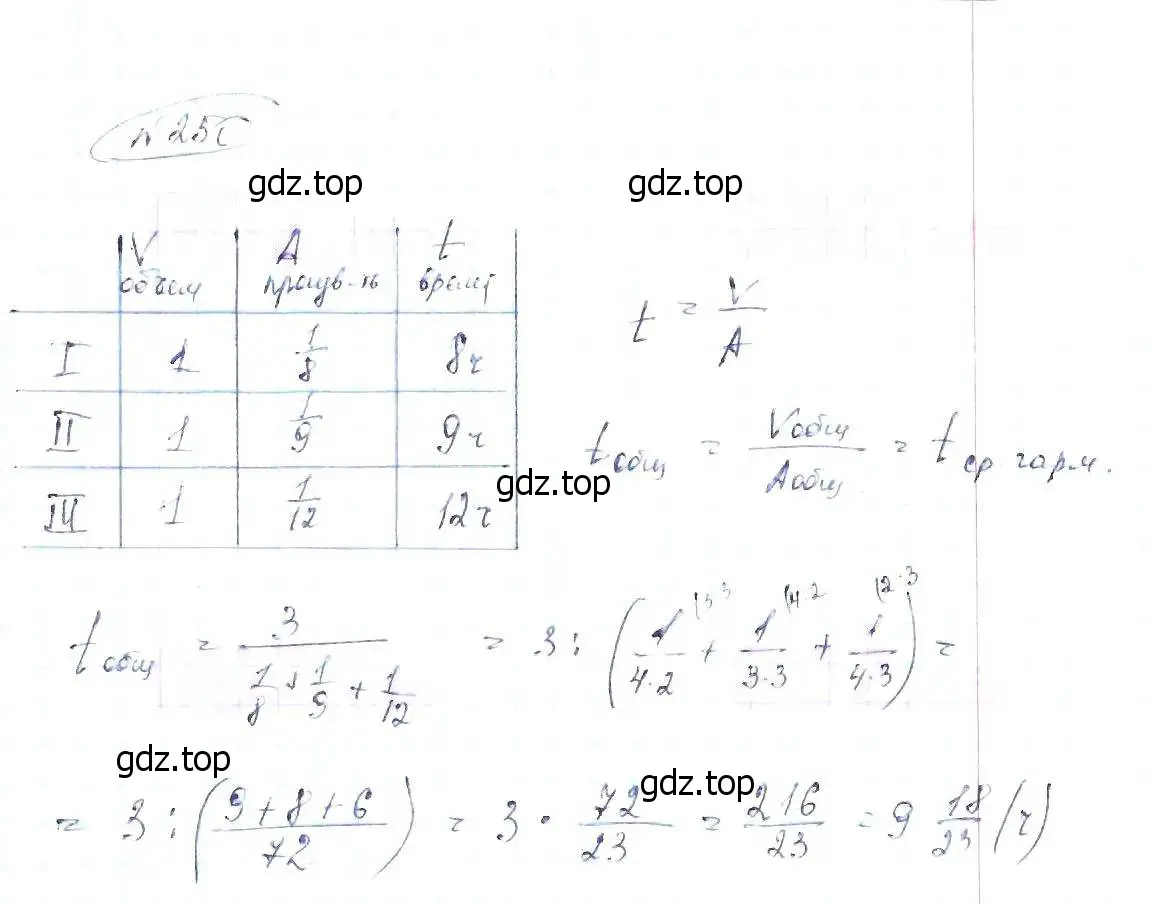 № 25C
gdz.top gdz.top
V A t
объем произв-ть время
I 1 1/8 8ч
II 1 1/9 9ч
III 1 1/12 12ч
t = V/A
t общ = V общ / A общ = t ср. гарм.
gdz.top
t общ = 3 / (1/8 + 1/9 + 1/12) = 3 : (1/(4·2) (3·3 + 1/(3·3) (4·2 + 1/(4·3) (2·3) =
gdz.top gdz.top
= 3 : ((9+8+6)/72) = 3 · 72/23 = 216/23 = 9 18/23 (ч)